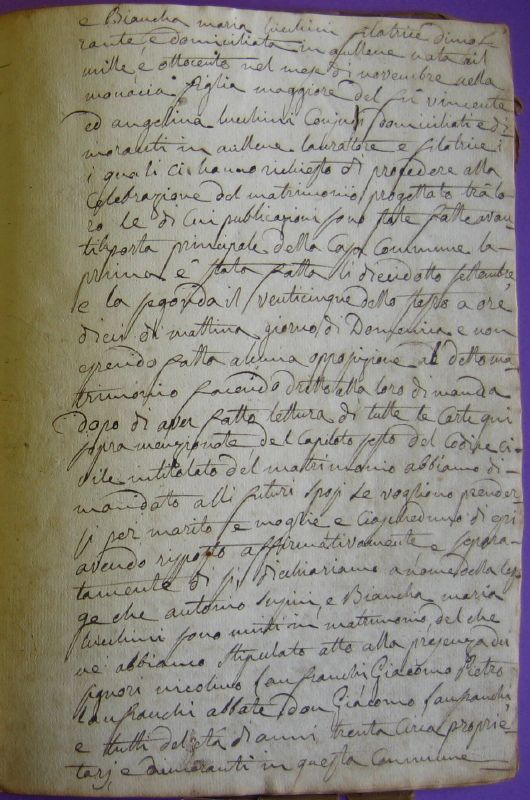 e Biancha maria Lucchini filatrice dimo-
rante, e domiciliata in aullene nata il
mille, é ottocento nel mese di novembre nella
monacia figlia maggiore del fù vincente
ed angelina Lucchini Conjugi domiciliati e di
moranti in aullene lauratore e filatrice i
i quali ci hanno richiesto di procedere alla
Celebrazione del matrimonio progettato trà lo
ro le di Cui publicazioni sono state fatte avan
ti la porta principale della Casa Commune la
prima é stata fatta li diecidotto settembre,
e la segonda il venticinque dello stesso a ore
dieci di mattina giorno di Domenica e non
essendo fatta alcuna opposizione al detto ma
trimonio facendo dritto alla loro dimanda
dopo di aver fatto lettura di tutte le Carte qui
sopra menzionate del Capitolo sesto del Codice ci-
vile intitolato del matrimonio abbiamo di-
mandato alli futuri sposi se vogliono prender
si per marito, e moglie e Ciascheduno di essi
avendo risposto affirmativamente e separa-
tamente di si dichiariamo a nome della leg
ge che antonio susini, e Biancha maria
Lucchini sono uniti in matrimonio del che
ne abbiamo stipulato atto alla presenza dei
signori nicolino Lanfranchi Giacomo Pietro
Lanfranchi abbate Don Giacomo Lanfranchi
e tutti dell'età di anni trenta Circa proprie-
tarj e dimoranti in questa Commune